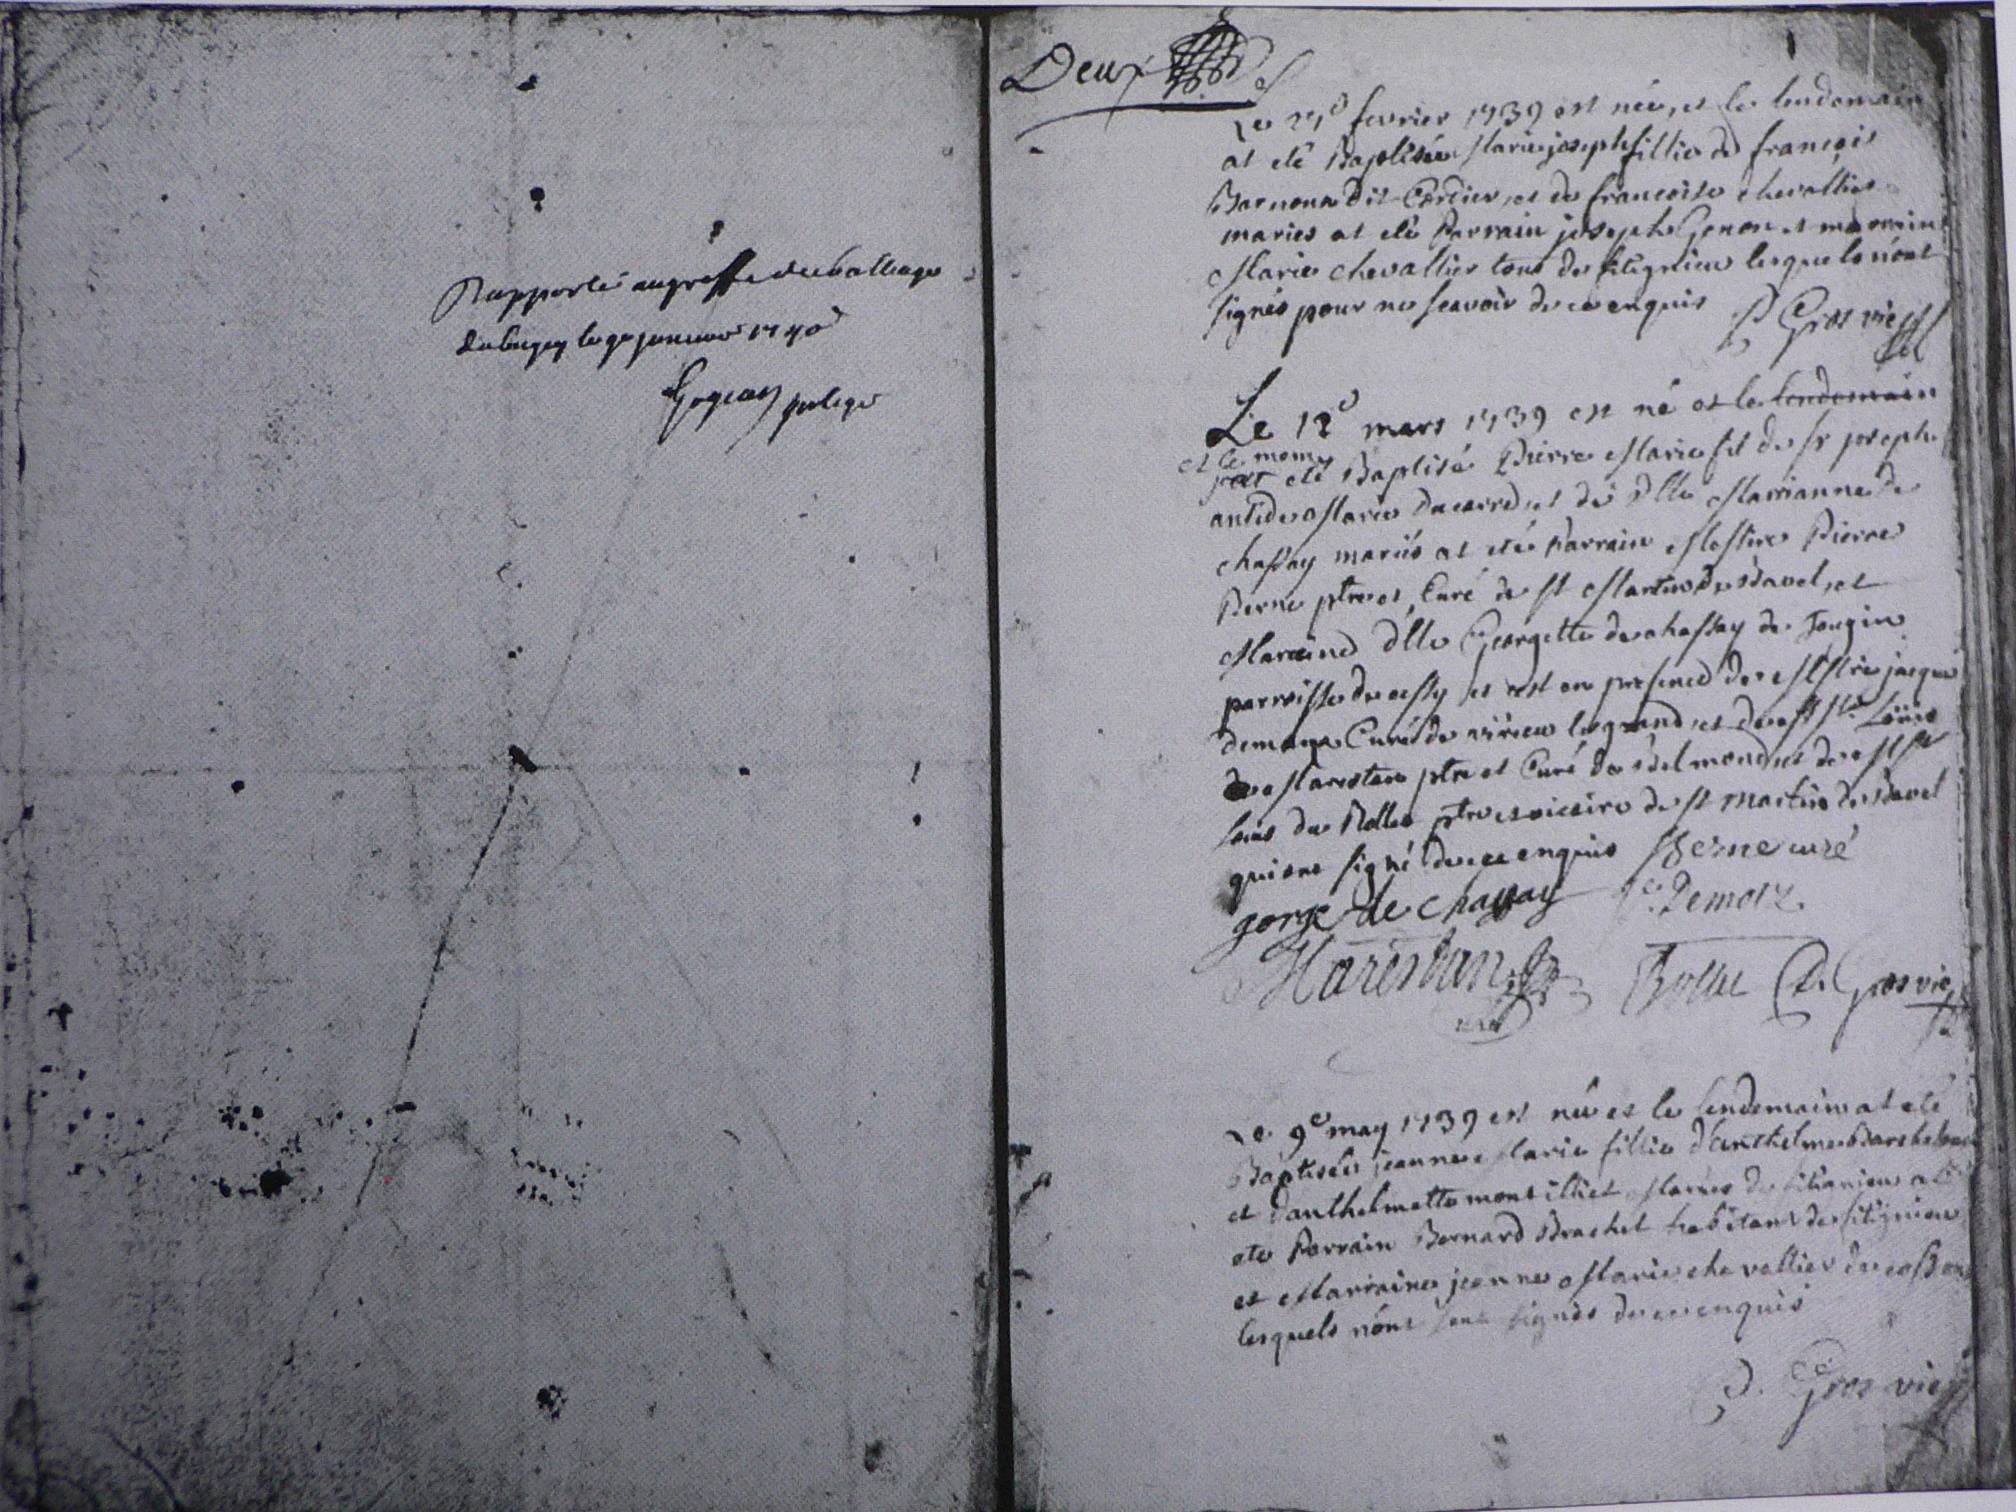 Rapporté au greffe du balliage
du bugey le 9e janvier 1740
Gogean
Deux
Le 21e fevrier 1739 est née, et le lendemain
at eté Baptisée Marie joseph fillie de françois
Barnona dit Cordier, et de francoise chevallier
maries at eté Parrain joseph Genon et marraine
Marie chevallier tous de sitignieu lesquels n'ont
signés pour ne scavoir de ce enquis
D. Gros vie
Le 12e mars 1739 est né et le lendemain
et le meme jour
at eté Baptisé Pierre Marie fil de sr joseph
antide Marie Ducarre, et de Dlle Marianne de
chassay mariés at eté Parrain Messire Pierre
Berne ptre et Curé de st Martin de Bavel, et
Maraine Dlle Georgette de chassay de Jougin
parroisse de cessy et cest en presence de Messire jacque
demaya Curé de virieu le grand, et de Messire Loüis
de Maristan ptre et Curé de belmond, et de Messire
Louis du Rollet ptre et vicaire de st martin de bavel
qui ont signé de ce enquis Berne curé
gorge de chassay Demorz
Marestan Rollet D. Gros vie
Le 9e may 1739 est née et le lendemain at eté
Baptisée jeanne Marie fillie d'anthelme
et d'anthelmette montilliet Maries de sitignieu at
ete Parrain Bernard Brachet habitant de sitignieu
et Marraine jeanne Marie chevallier de
lesquels n'ont signés de ce enquis
D. Gros vie